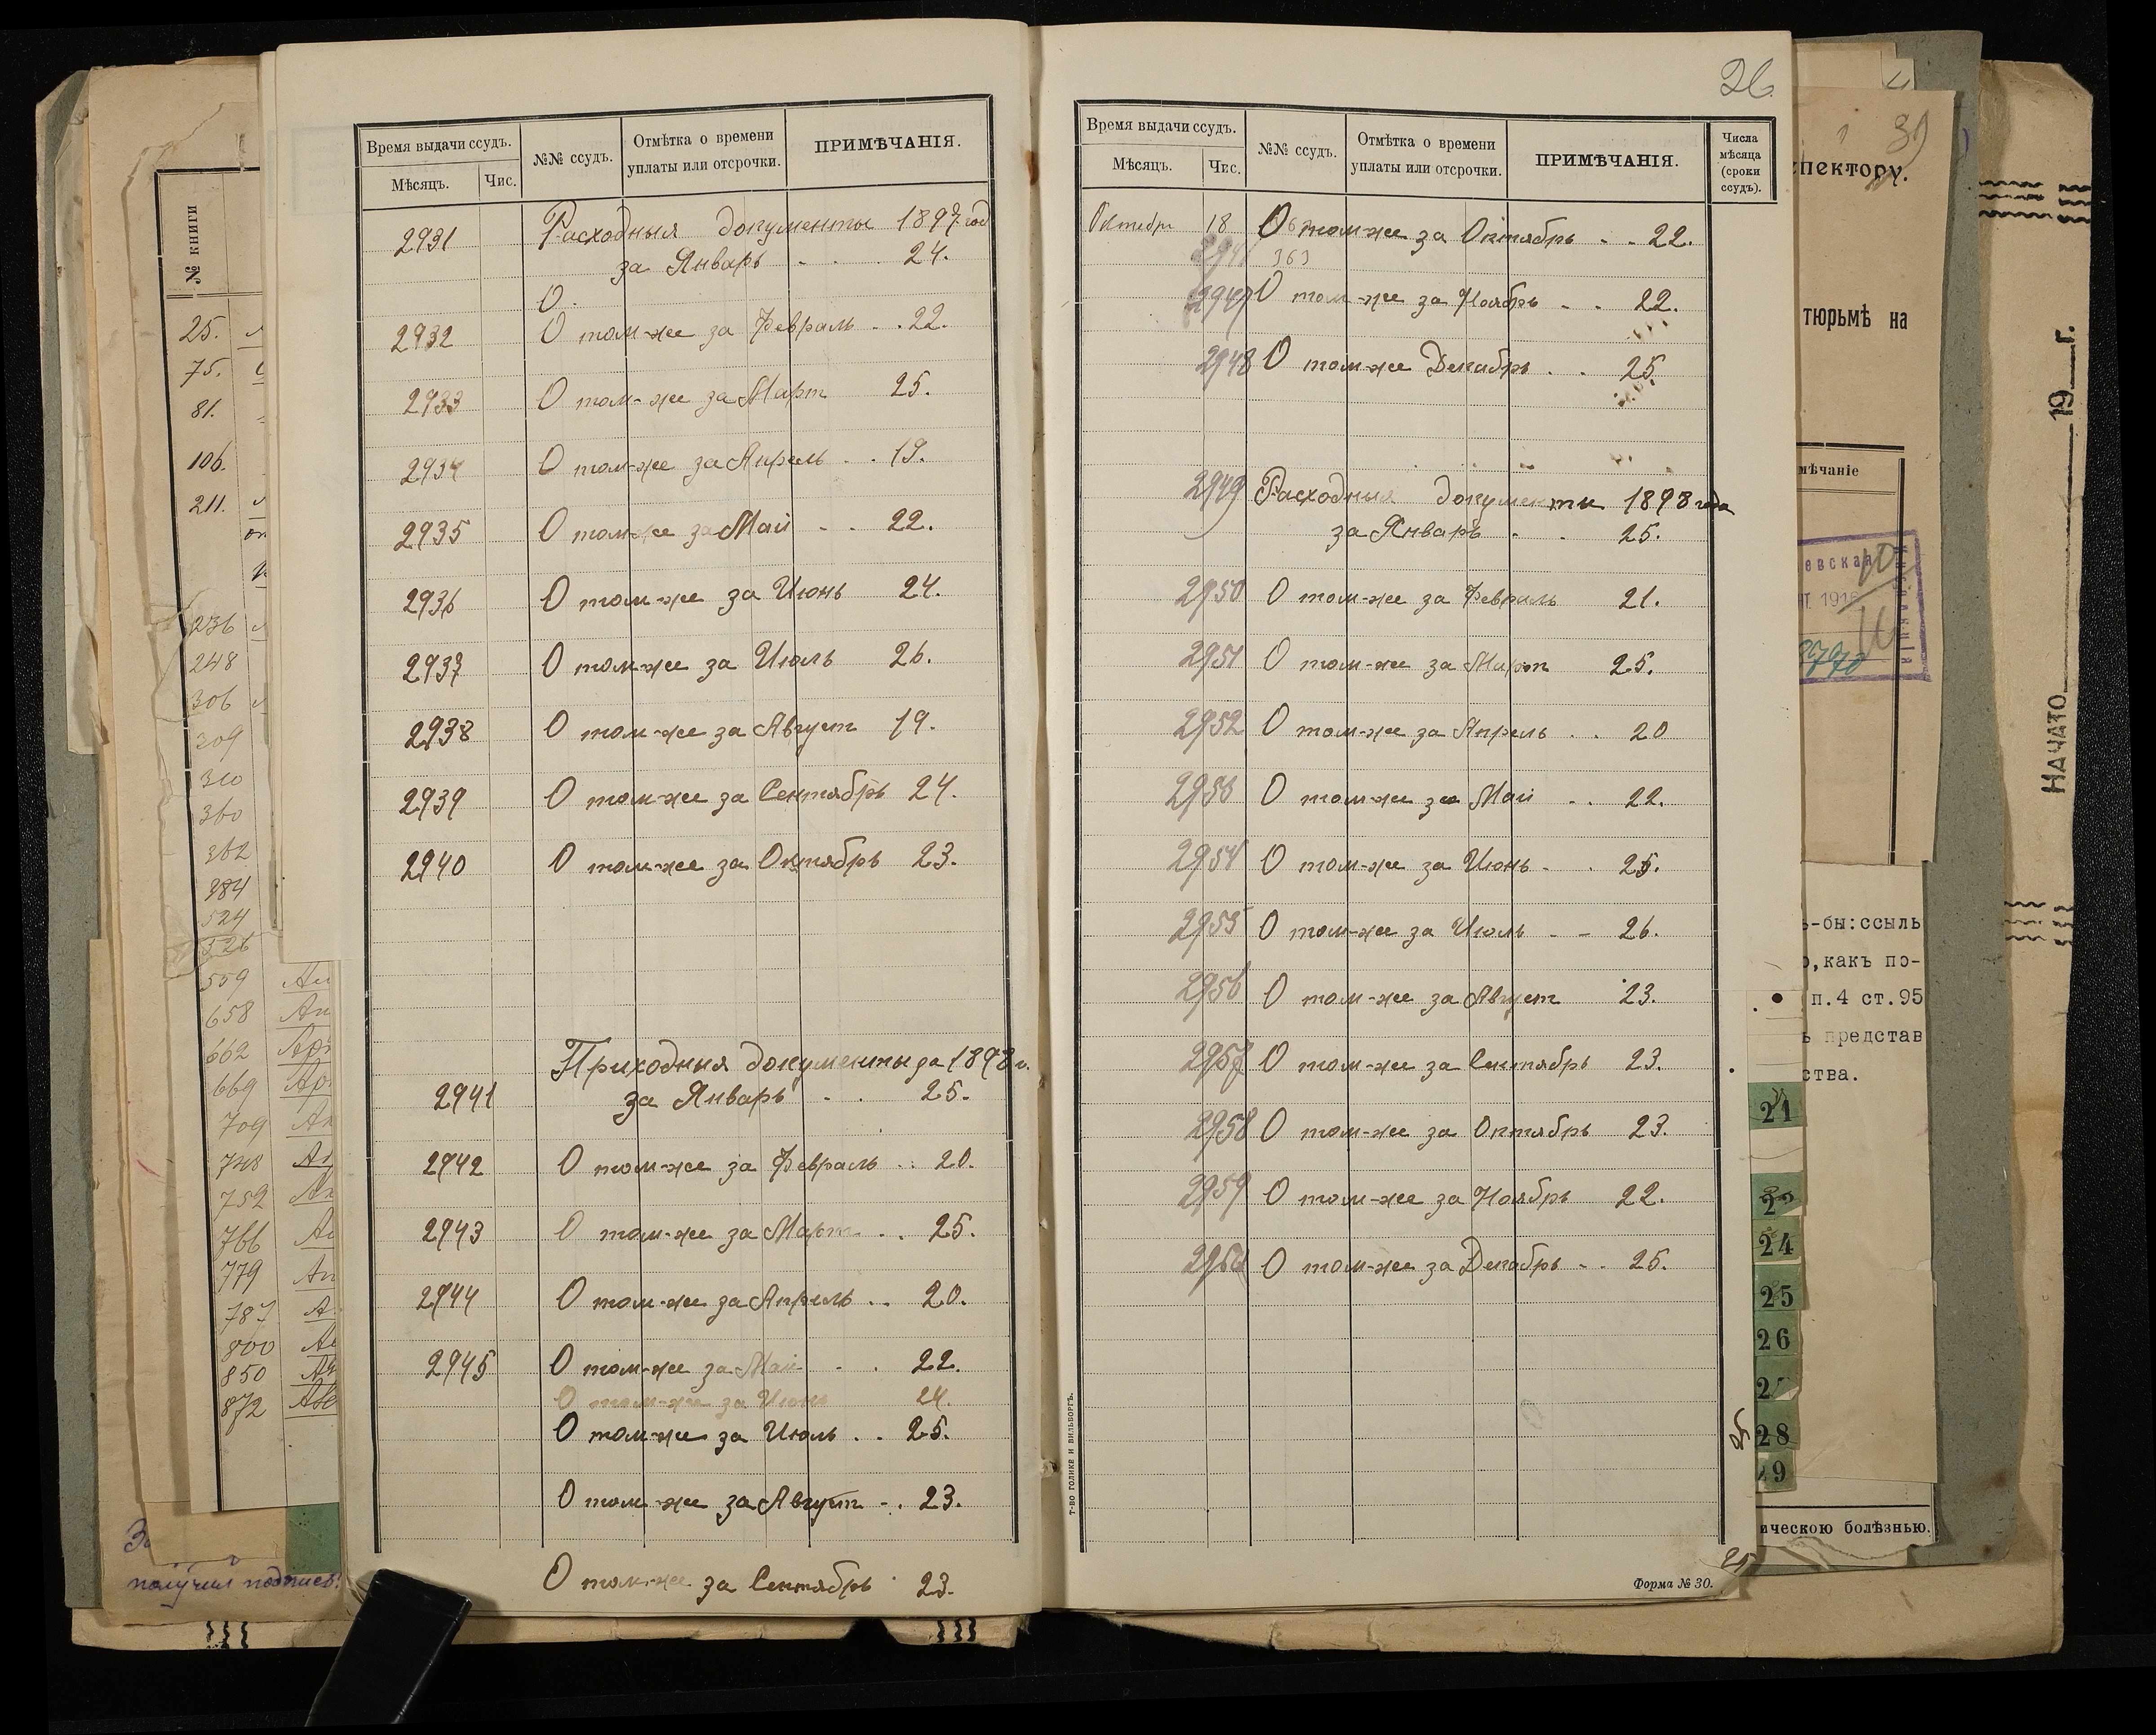 Время выдачи ссудъ.
Мѣсяцъ.
Чис.
№№ ссудъ.
Отмѣтка о времени
уплаты или отсрочки.
ПРИМѢЧАНІЯ.
2931 Расходныя документы 1897 год
за Январь - . . 24.
О.
2932 О том-же за Февраль - . 22.
2933 О том-же за Март 25.
2934 О том-же за Апрель . . 19.
2935 О том-же за Май - . 22.
2936 О том-же за Июнь 24.
2937 О том-же за Июль 26.
2938 О том-же за Август 19.
2939 О том-же за Сентябрь 24.
2940 О том-же за Октябрь 23.
Приходныя документы за 1898 г.
2941 за Январь - . 25.
2942 О том-же за Февраль . . 20.
2943 О том-же за Март . . 25.
2944 О том-же за Апрель . . 20.
2945 О том-же за Май - . 22.
О том-же за Июнь 24.
О том-же за Июль . . 25.
О том-же за Август - . 23.
О том-же за Сентябрь 23.
26.
Время выдачи ссудъ.
Мѣсяцъ.
Чис.
№№ ссудъ.
Отмѣтка о времени
уплаты или отсрочки.
ПРИМѢЧАНІЯ.
Числа
мѣсяца
(сроки
ссудъ).
Октябрь 18 О том-же за Октябрь - . 22.
363
2947 О том-же за Ноябрь - . 22.
2948 О том-же Декабрь . . 25.
2949 Расходныя документы 1898 года
за Январь - . 25.
2950 О том-же за Февраль 21.
2951 О том-же за Март 25.
2952 О том-же за Апрель . . 20
2953 О том-же за Май . . 22.
2954 О том-же за Июнь - . 25.
2955 О том-же за Июль - - 26.
2956 О том-же за Август 23.
2957 О том-же за Сентябрь 23.
2958 О том-же за Октябрь 23.
2959 О том-же за Ноябрь 22.
2960 О том-же за Декабрь - . 25.
Т-ВО ГОЛИКЕ И ВИЛЬБОРГЪ.
Форма № 30.
№ книги
25.
75.
81.
106.
211.
236
248
306
309
310
360
362
384
524
526
559
658
662
669
709
748
752
766
779
787
800
850
872
получил
пектору.
тюрьмѣ на
мѣчаніе
евская
1916
ь-бы:ссыль
о,какъ по-
п.4 ст.95
ь представ
ства.
21
24
25
26
28
29
ическою болѣзнью.
НАЧАТО 19 г.